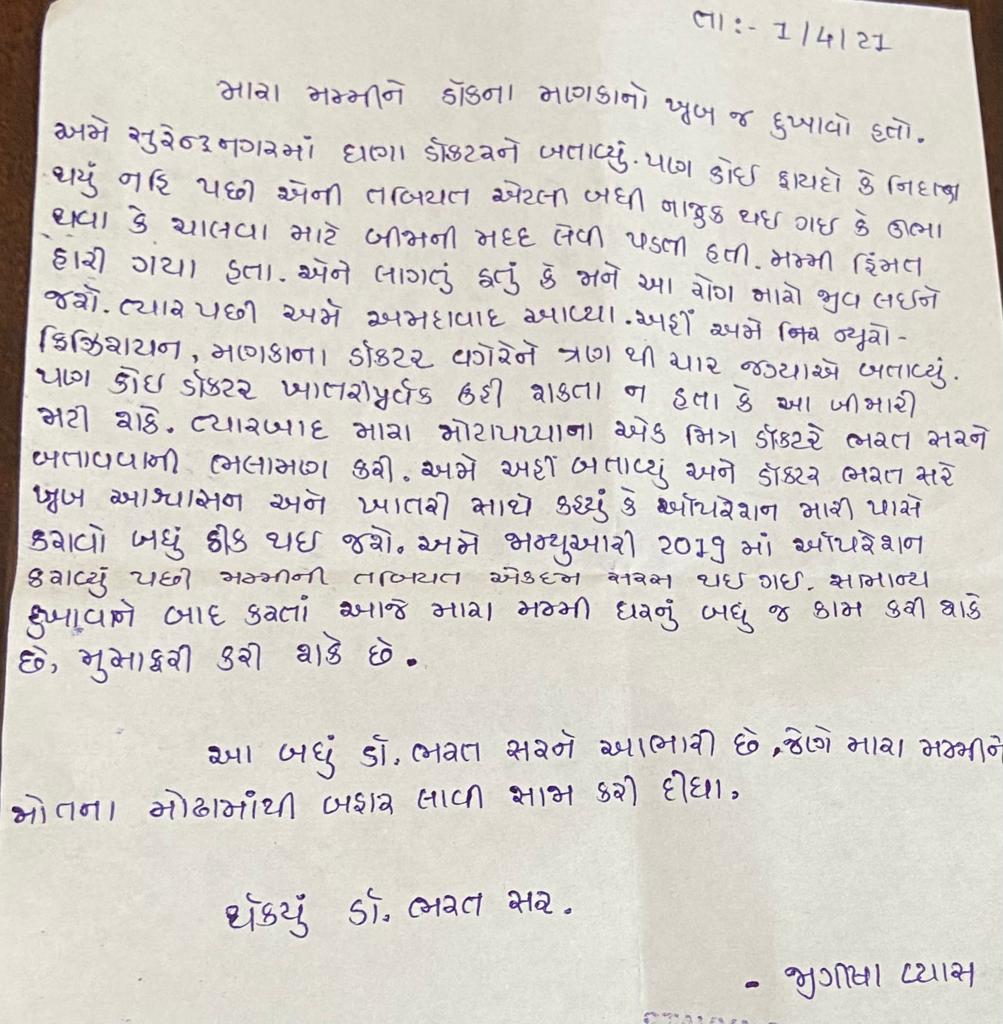 તા:- 1/4/21
મારા મમ્મીને ડોકના મણકાનો ખૂબ જ દુખાવો હતો.
અમે સુરેન્દ્રનગરમાં ઘણા ડોકટરને બતાવ્યું. પણ કોઈ ફાયદો કે નિદાન
થયું નહિ પછી એની તબિયત એટલી બધી નાજુક થઇ ગઇ કે ઊભા
થવા કે ચાલવા માટે બીજાની મદદ લેવી પડતી હતી. મમ્મી હિંમત
હારી ગયા હતા. એને લાગતું હતું કે મને આ રોગ મારો જીવ લઇને
જશે. ત્યાર પછી અમે અમદાવાદ આવ્યા. અહીં અમે ન્યૂરો-
ફિઝિશયન, મણકાના ડૉકટર વગેરેને ત્રણ થી ચાર જગ્યાએ બતાવ્યું.
પણ કોઇ ડૉકટર ખાતરીપૂર્વક કહી શકતા ન હતા કે આ બીમારી
મટી શકે. ત્યારબાદ મારા મોટાપપ્પાના એક મિત્ર ડૉકટરે ભરત સરને
બતાવવાની ભલામણ કરી. અમે અહીં બતાવ્યું અને ડૉકટર ભરત સરે
ખૂબ આશ્વાસન અને ખાતરી સાથે કહ્યું કે ઑપરેશન મારી પાસે
કરાવો બધું ઠીક થઇ જશે. અમે જાન્યુઆરી 2019 માં ઑપરેશન
કરાવ્યું પછી મમ્મીની તબિયત એકદમ સરસ થઇ ગઇ. સામાન્ય
દુખાવાને બાદ કરતાં આજે મારા મમ્મી ઘરનું બધુ જ કામ કરી શકે
છે, મુસાફરી કરી શકે છે.
આ બધું ડૉ. ભરત સરને આભારી છે, જેણે મારા મમ્મીને
મોતના મોઢામાંથી બહાર લાવી સાજા કરી દીધા.
થૅંકયું ડૉ. ભરત સર.
- જીગીષા વ્યાસ